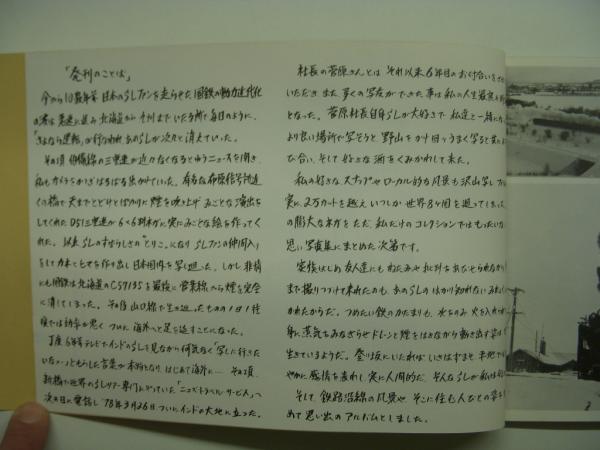 「発刊のことば」
今から10数年前 日本のSLファンを走らせた 国鉄の動力近代化
の波は 急速に進み 北海道から 九州まで いたる所で毎日のように、
"さよなら運転"が行なわれ あのSLが次々と消えていった。
その頃 伯備線の三重連が 近かなくなるとゆうニュースを聞き、
私もカメラをかつぎはるばる出かけていた。 有名な布原信号場近
くの橋で 天までとどけとばかりに 煙を吹き上げ みごとな演出を
してくれた D51三重連が 6×6判ネガに実にみごとな絵を作ってく
れた。 以来 SLのすばらしさの"とりこ"になり SLファンの仲間入り
をして カネとヒマを作り出し 日本国内を写し廻った。しかし非情
にも国鉄は北海道のC57135を最後に 営業線から煙を完全
に消してしまった。 その後 山口線で生き返ったものの 1日1往
復では効率が悪く ついに 海外へと足を延すことになった。
丁度 6年前テレビで インドのSLを見ながら何気なく"写しに行きた
いなァ"ともらした言葉が本物となり、はじめて海外に── その頃、
新橋で世界のSLツアー専門にやっていた「ニュズトラベル・サービス」へ
次の日に電話し '78年3月26日 ついにインドの大地に立った。
社長の菅原さんとは それ以来 6年目のお付合いをさせ
いただき また 多くの写友ができた事は 私の人生最良の
となった。 菅原社長自身SLが大好きで 私達と一緒に
より良い場所で写そうと 野山をかけ回り うまく写ると
び合い、そして好きな酒をくみかわして来た。
私の好きな スナップや ローカル的な風景も沢山写し
実に 2万カットを越え いつしか 世界8ヶ国を廻ってしまった
の膨大なネガを ただ 私だけのコレクションではもったいな
思い 写真集にまとめた次第です。
家族はじめ友人達にも
まで撮りつづけて来れたのも、あのSLの はかり知れない
かれたからだ。 つめたい鉄のかたまりも、水をのみ 火を入れ
身に蒸気をみなぎらせ ドレーンと煙をはきながら動き出す姿は
生きているようだ。 登り坂にいたれば いきはずませ 平地で
やかに 感情を表わし 実に人間的だ。 そんなSLが私は
そして 鉄路沿線の風景や そこに住む人びとの
めて 思い出の アルバムとしました。